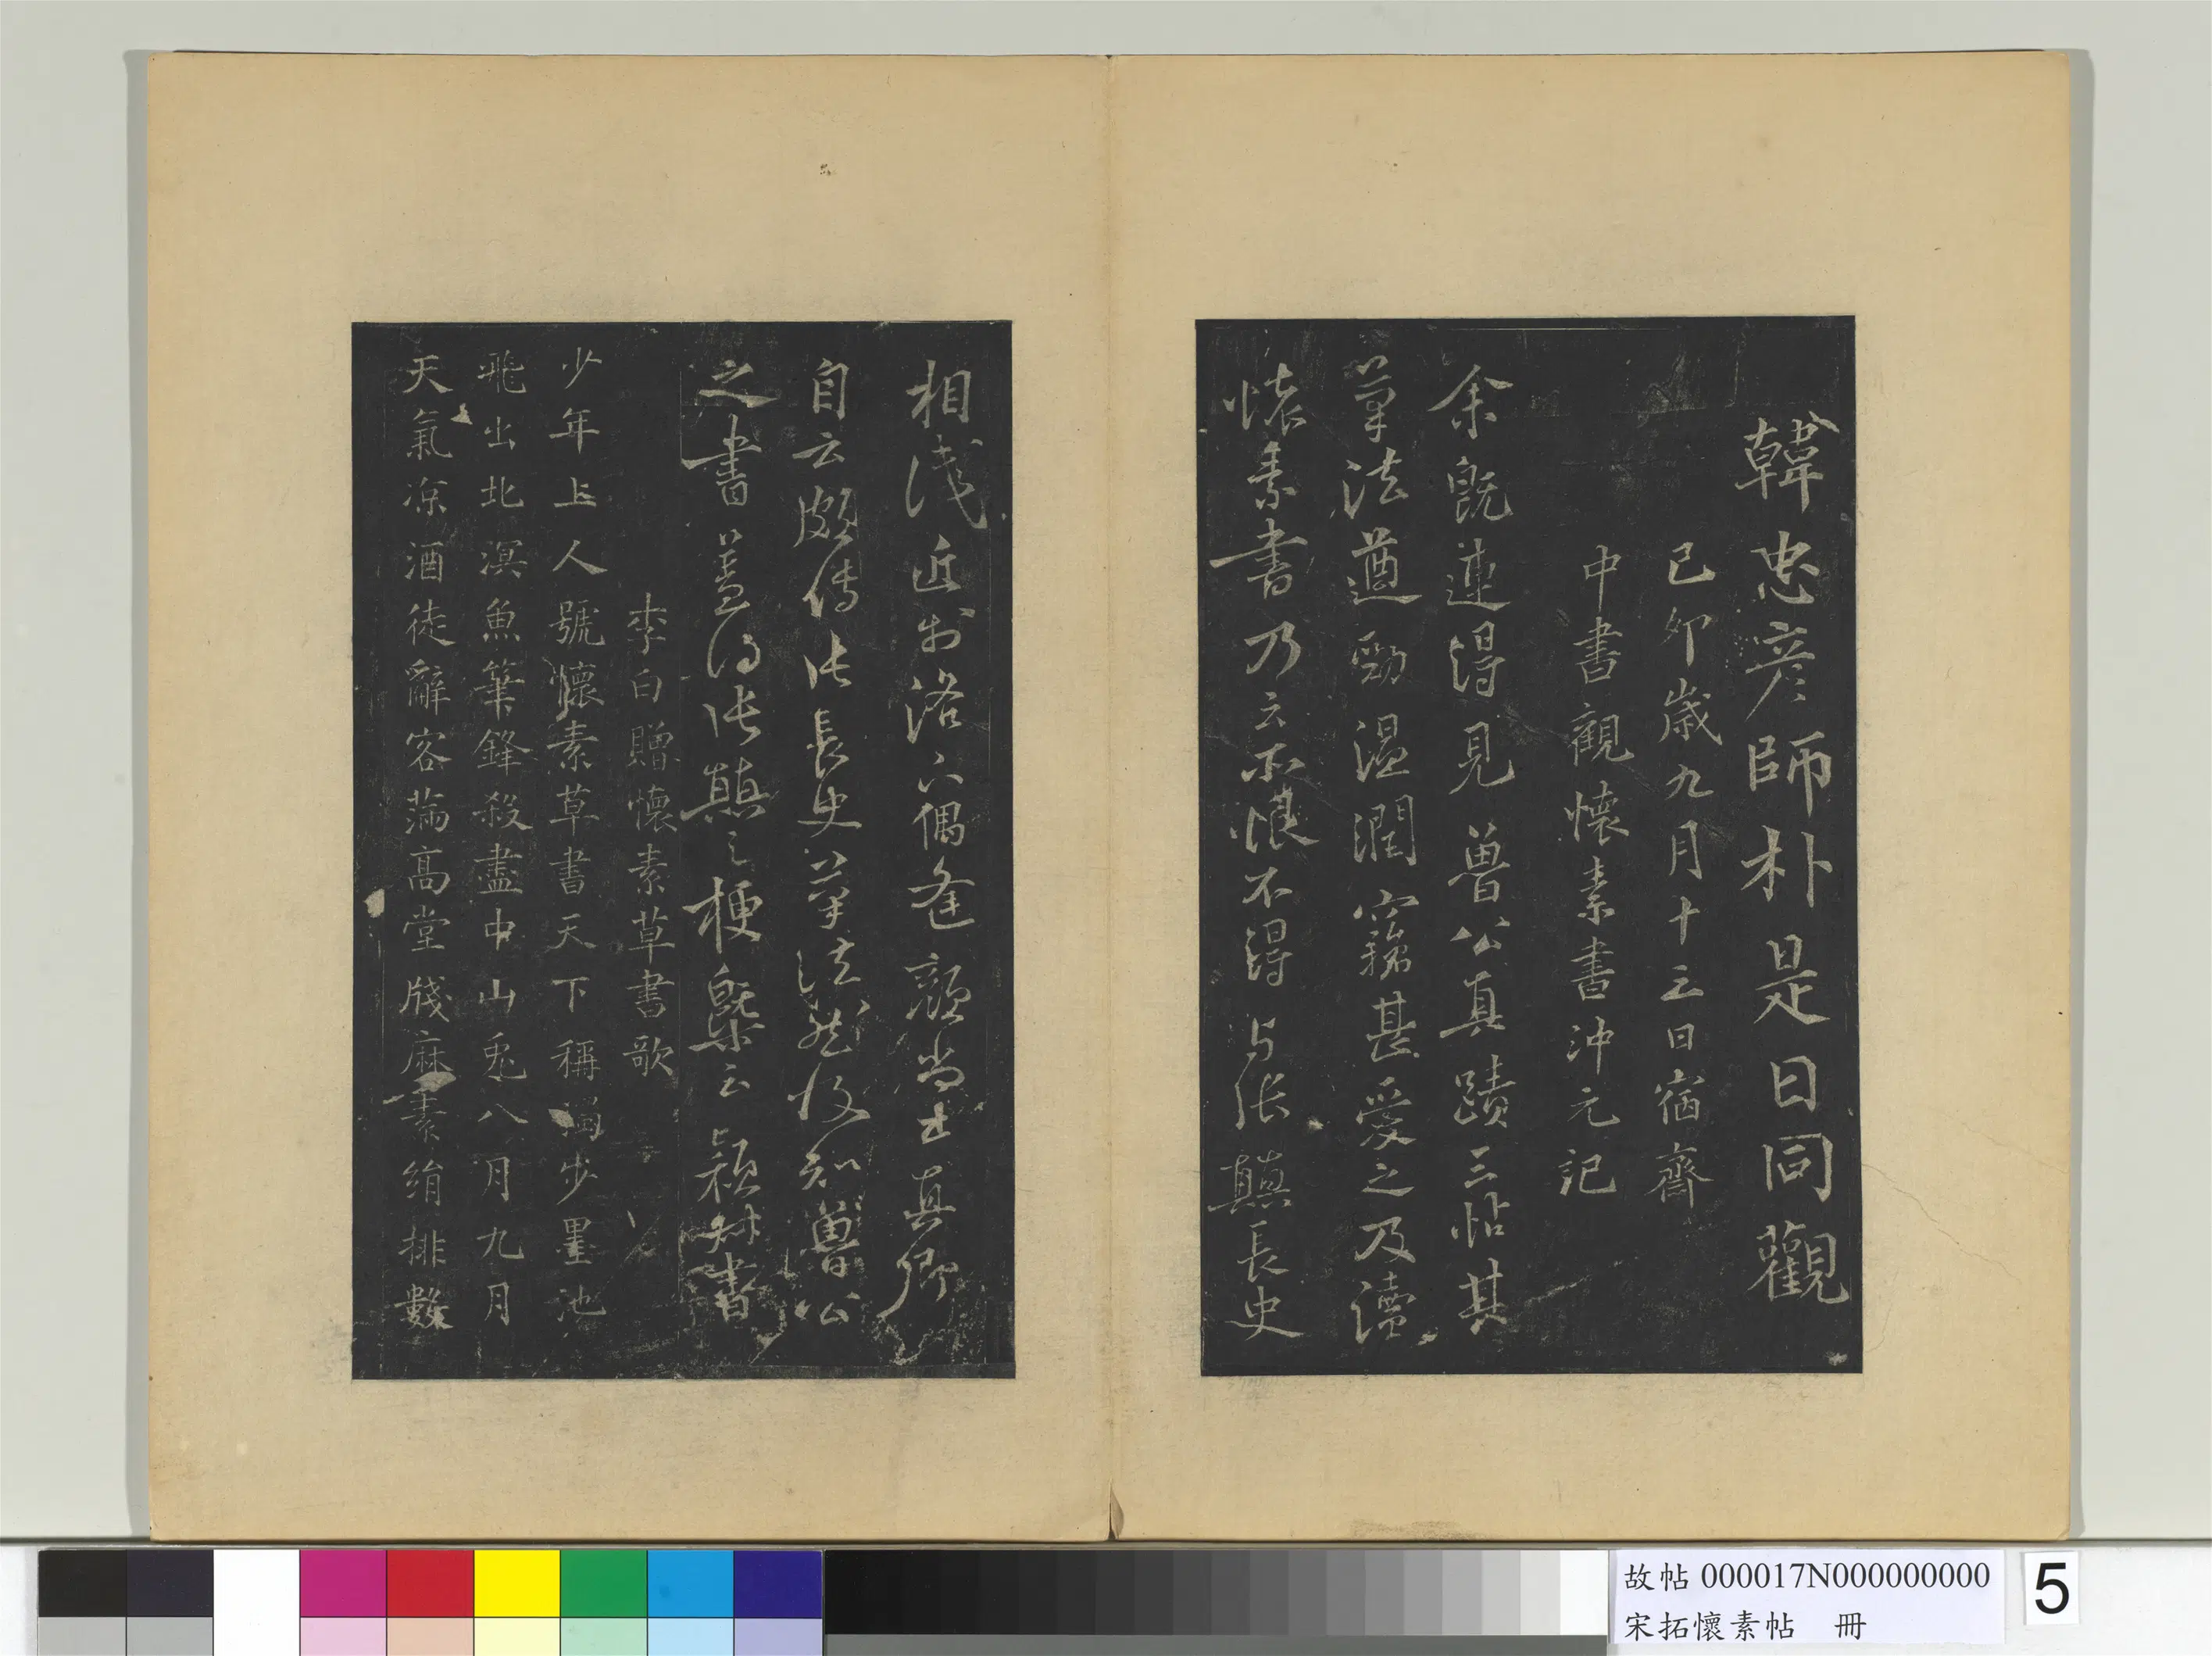 韓忠彦師朴是日同觀
己卯歲九月十三日宿齋
中書觀懷素書沖元記
余既連得見魯公真蹟三帖其
筆法遒勁溫潤竊甚愛之及讀
懷素書乃云亦恨不得与張顛長史
相識近於洛下偶逢顏尚士真卿
自云頗傳張長史筆法然後知魯公
之書蓋得張顛之梗槩云穎叔書
李白贈懷素草書歌
少年上人號懷素草書天下稱獨步墨池
飛出北溟魚筆鋒殺盡中山兎八月九月
天氣凉酒徒辭客滿高堂牋麻素絹排數
故帖 000017N000000000
宋拓懷素帖 冊
5